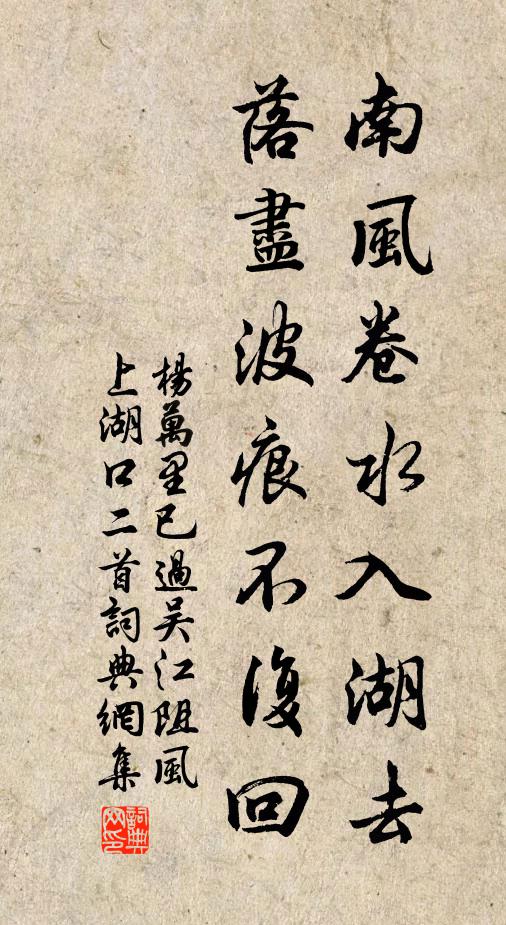 南風卷水入湖去
落盡波痕不復回
楊萬里已過吳江阻風
上湖口二首詞典網集
詞典
网印